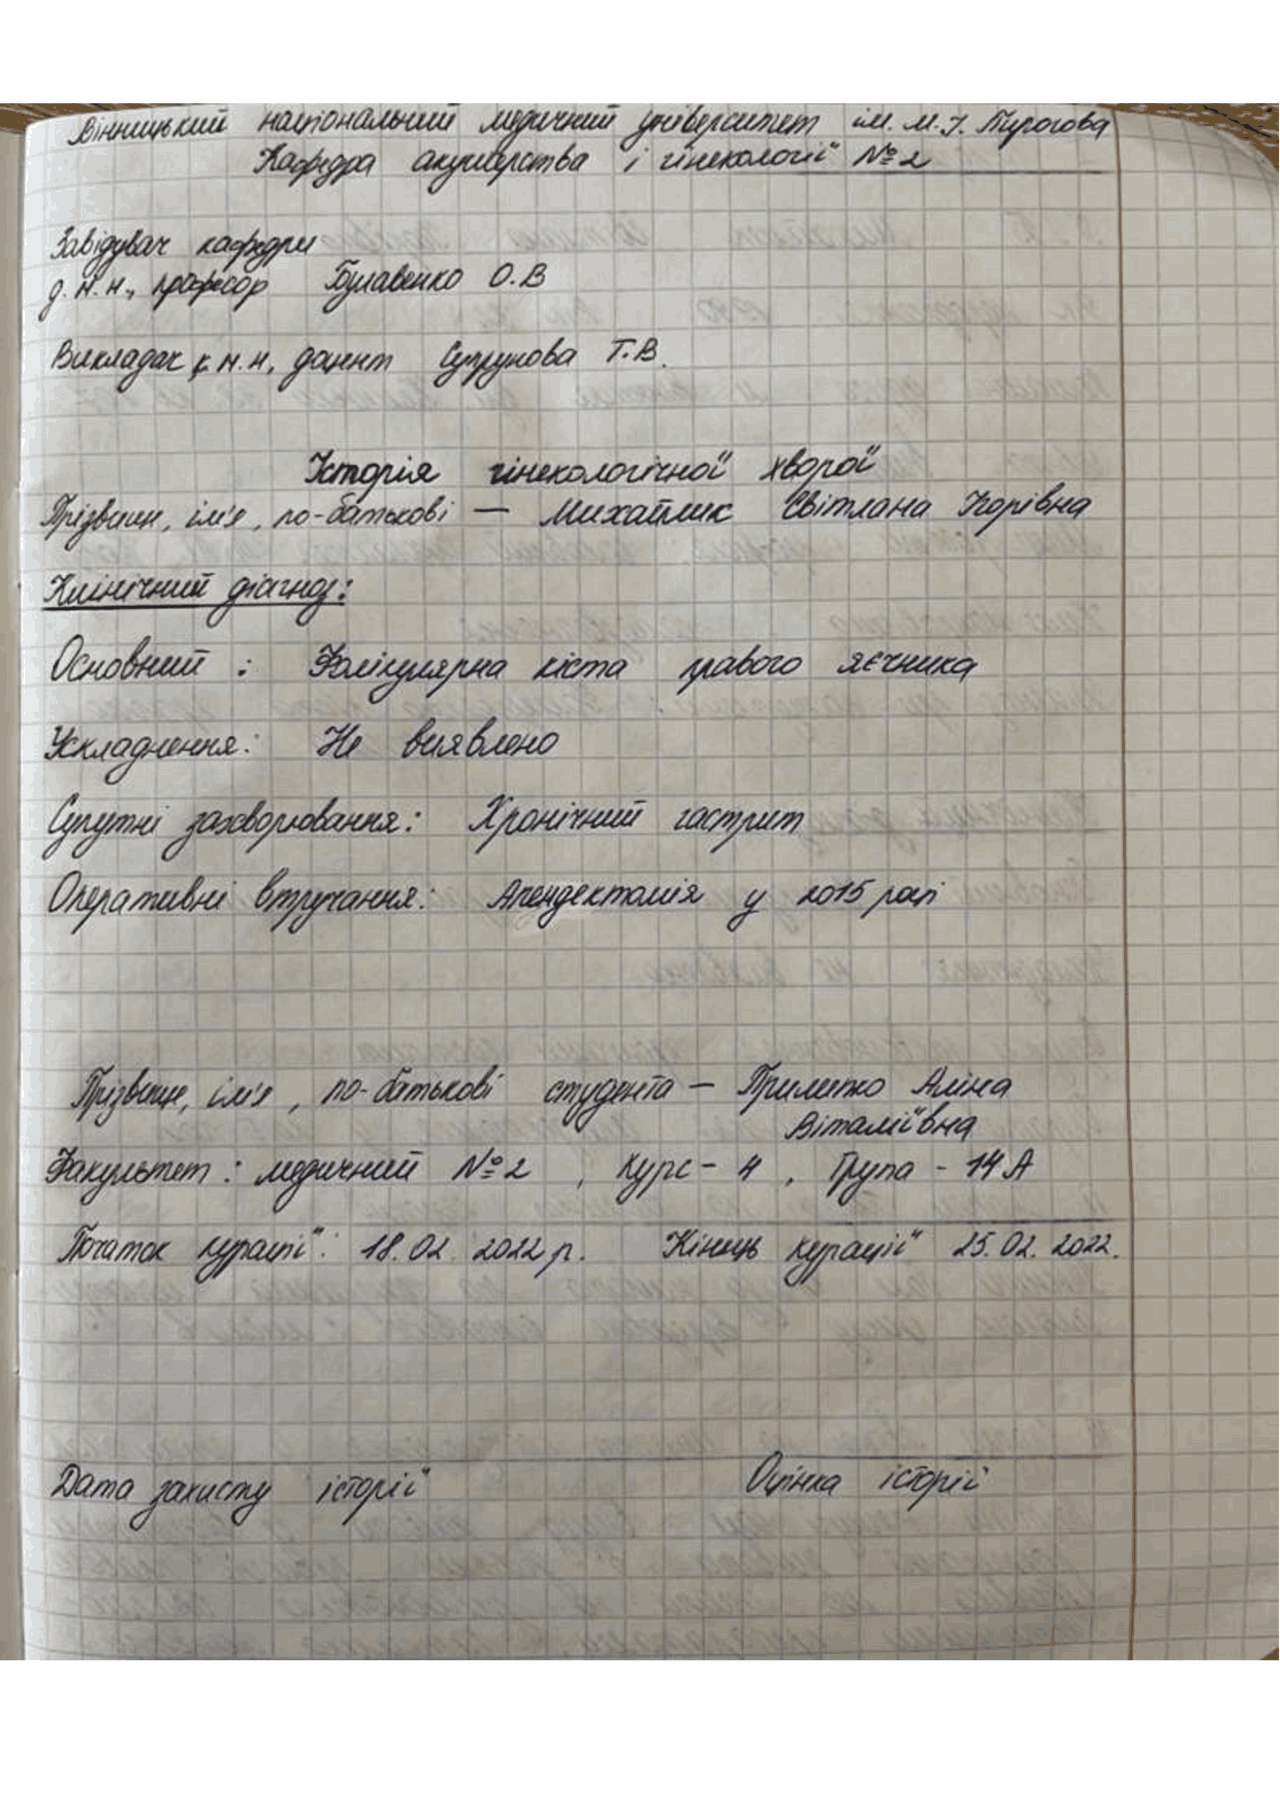 Вінницький національний медичний університет ім. М.І. Пирогова
Кафедра акушерства і гінекології №2
Завідувач кафедри
д.м.н., професор Булавенко О.В
Викладач к.м.н, доцент Супрунова Т.В.
Історія гінекологічної хворої
Прізвище, ім'я, по-батькові — Михайлик Світлана Ігорівна
Клінічний діагноз:
Основний : Фолікулярна кіста правого яєчника
Ускладнення: Не виявлено
Супутні захворювання: Хронічний гастрит
Оперативні втручання: Апендектомія у 2015 році
Прізвище, ім'я, по-батькові студента — Аліна
Віталіївна
Факультет : медичний №2 , Курс - 4 , Група - 14 А
Початок курації: 18.02.2022 р. Кінець курації 25.02.2022.
Дата захисту історії Оцінка історії